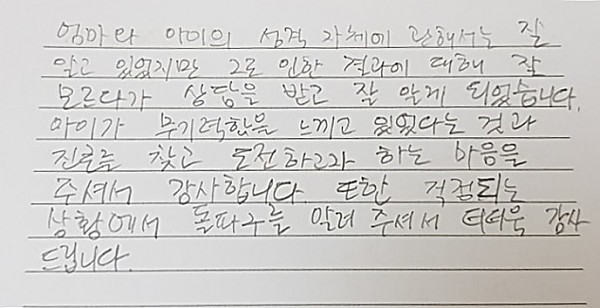 엄마와 아이의 성격 자체에 관해서는 잘
알고 있었지만 그로 인한 결과에 대해 잘
모르다가 상담을 받고 잘 알게 되었습니다.
아이가 무기력함을 느끼고 있었다는 것과
진로를 찾고 도전하고자 하는 마음을
주셔서 감사합니다. 또한 걱정되는
상황에서 돌파구를 알려 주셔서 더더욱 감사
드립니다.